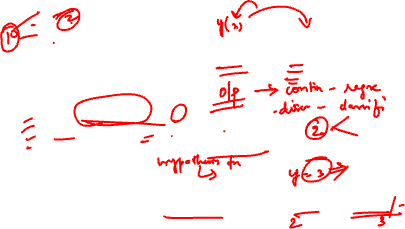 1 2
y(x)
o/p → contin - regre
discr - classifi
2
hypothesis fn
y = 3
2 3